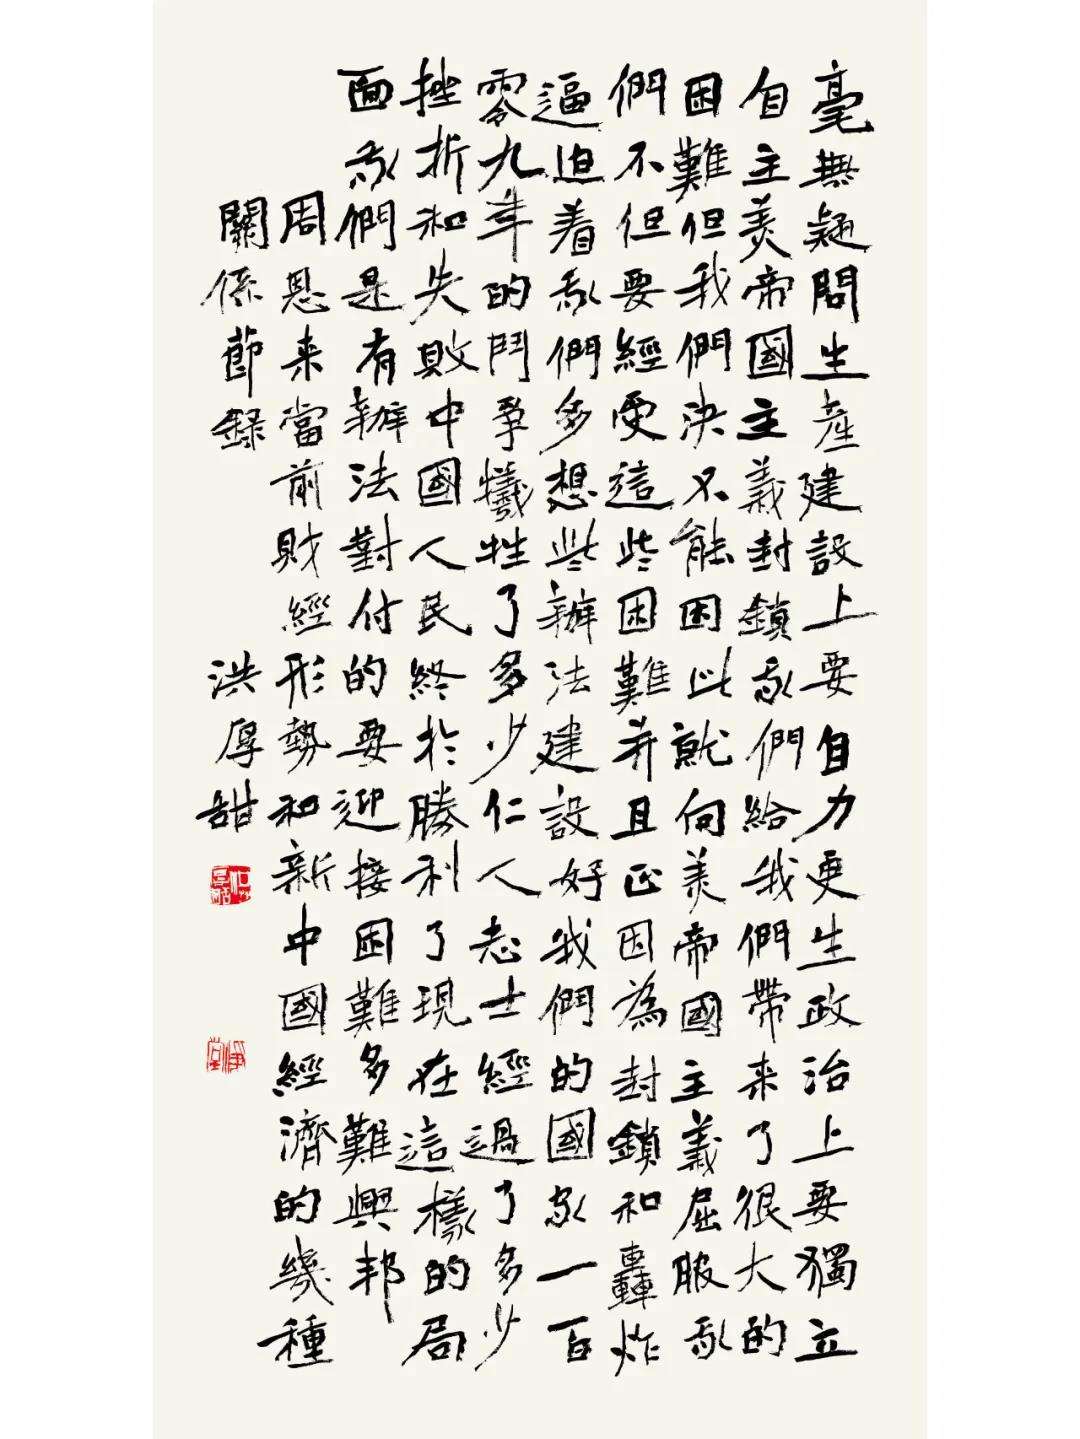 毫無疑問生產建設上要自力更生政治上要獨立
自主美帝國主義封鎖我們給我們帶来了很大的
困難但我們決不能因此就向美帝國主義屈服我
們不但要經受這些困難并且正因為封鎖和轟炸
逼迫着我們多想些辦法建設好我們的國家一百
零九年的鬥爭犧牲了多少仁人志士經過了多少
挫折和失敗中國人民終於勝利了現在這樣的局
面我們是有辦法對付的要迎接困難多難興邦
周恩来當前財經形勢和新中國經濟的幾種
關係節錄 洪厚甜